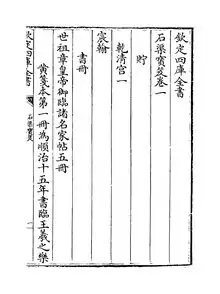 欽定四庫全書
石渠寶笈卷一
貯
乾清宮一
宸翰
書冊
世祖章皇帝御臨諸名家帖五冊
黄箋本第一冊為順治十五年書臨王羲之樂
欽定四庫全書
石渠寶笈